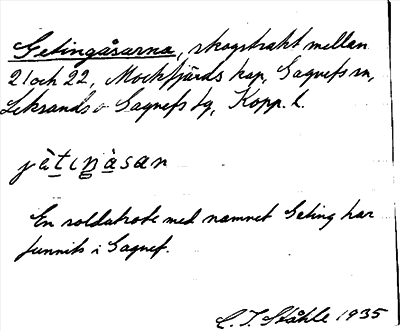 Getingåsarna, skogstrakt mellan
21 och 22, Mockfjärds kap, Gagnefs sn,
Leksands o Gagnefs tg, Kopp. l.
jètiŋàsan
En soldatrote med namnet Geting har
funnits i Gagnef.
C. I. Ståhle 1935